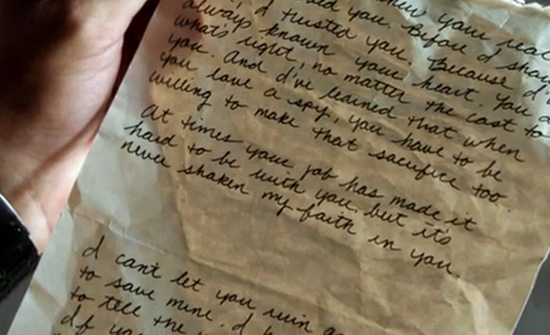 you. Before I
I trusted you. Because I'
always known your heart. You
what's right, no matter the cost to
you. And I've learned that when
you love a spy, you have to be
willing to make that sacrifice too.
At times your job has made it
hard to be with you but it's
never shaken my faith in you.
I can't let you ruin
to save mine. I
to tell the
If